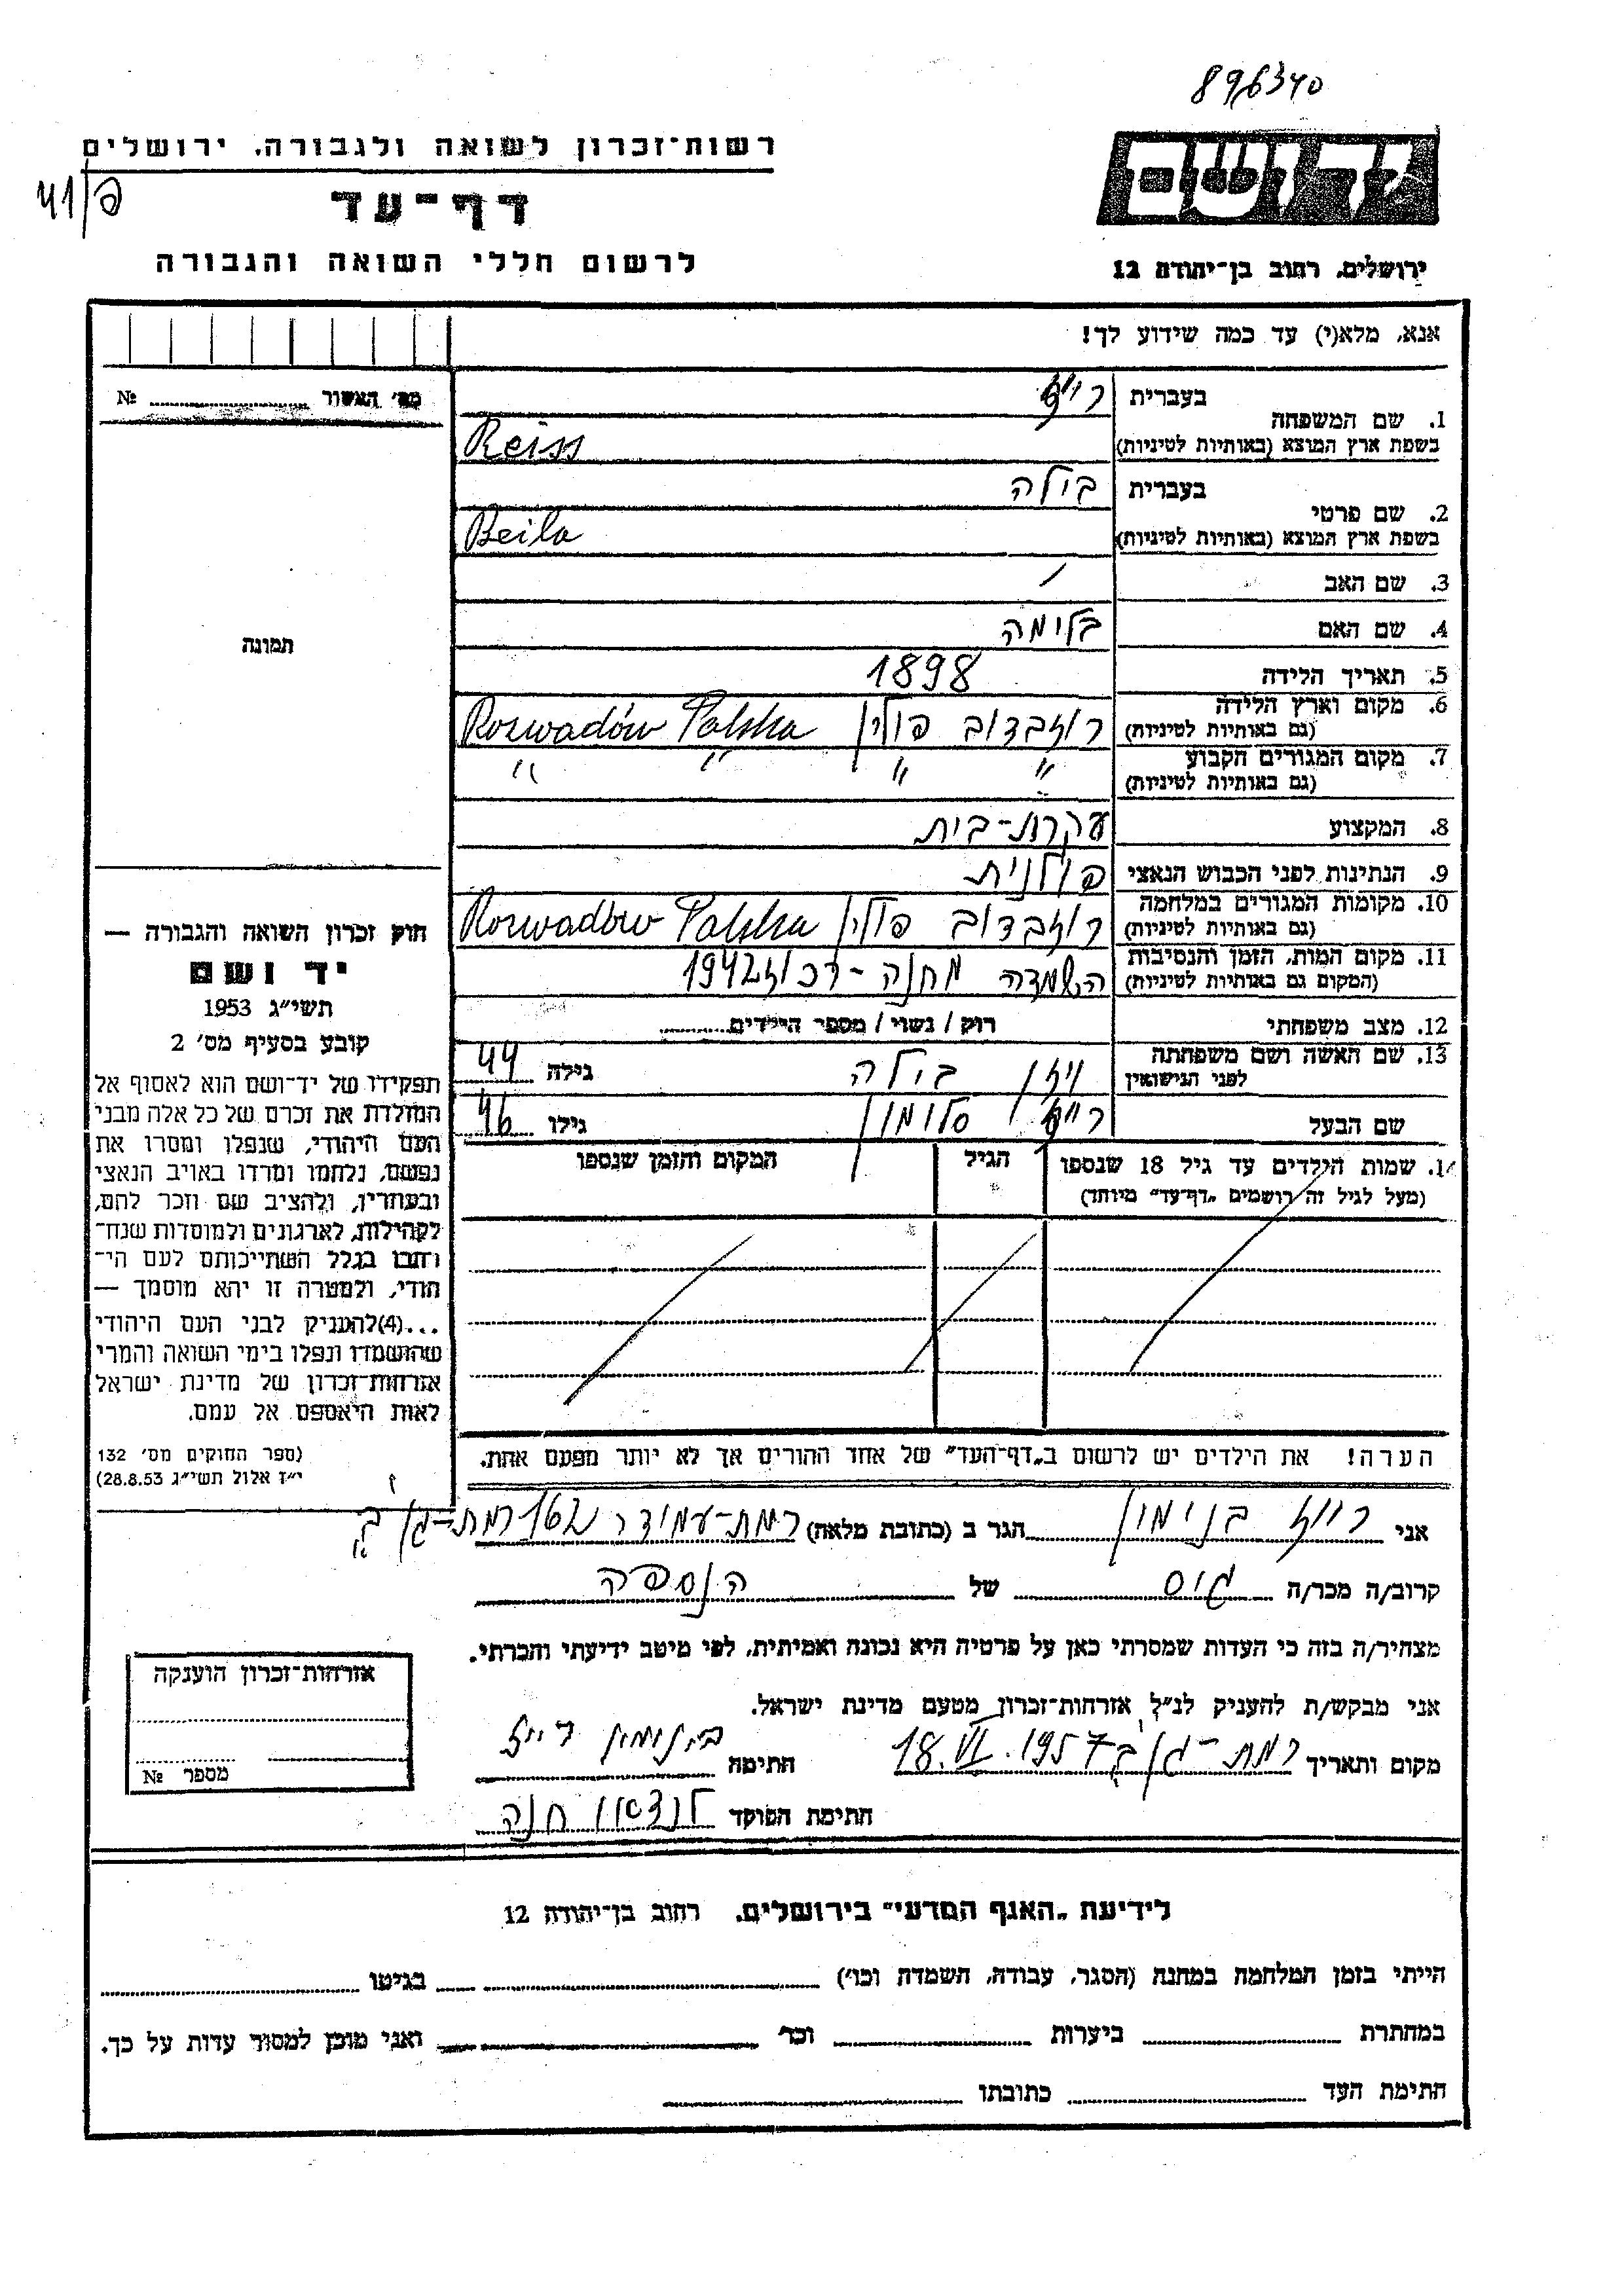 896340
רשות־זכרון לשואה ולגבורה, ירושלים
41/פ
דף־עד
לרשום חללי השואה והגבורה
יד ושם
ירושלים, רחוב בן־יהודה 12
אנא, מלא(י) עד כמה שידוע לך!
מס׳ האשור № ........
1. שם המשפחה בעברית
בשפת ארץ המוצא (באותיות לטיניות) Reiss
2. שם פרטי בעברית בילה
בשפת ארץ המוצא (באותיות לטיניות) Beila
3. שם האב /
4. שם האם בלימה
תמונה
5. תאריך הלידה 1898
6. מקום וארץ הלידה (גם באותיות לטיניות) רוזבדוב פולין Rozwadów Polska
7. מקום המגורים הקבוע (גם באותיות לטיניות) " " " "
8. המקצוע עקרת-בית
9. הנתינות לפני הכבוש הנאצי פולנית
10. מקומות המגורים במלחמה (גם באותיות לטיניות) רוזבדוב פולין Rozwadów Polska
11. מקום המות, הזמן והנסיבות (המקום גם באותיות לטיניות) השמדה מחנה- 1942
12. מצב משפחתי רווק / נשוי / מספר הילדים........
13. שם האשה ושם משפחתה לפני הנישואין בילה גילה 44
שם הבעל סלומון גילו 46
14. שמות הילדים עד גיל 18 שנספו
(מעל לגיל זה רושמים „דף־עד״ מיוחד)
הגיל
המקום והזמן שנספו
הערה! את הילדים יש לרשום ב„דף־העד״ של אחד ההורים אך לא יותר מפעם אחת.
חוק זכרון השואה והגבורה —
יד ושם
תשי״ג 1953
קובע בסעיף מס׳ 2
תפקידו של יד־ושם הוא לאסוף אל
המולדת את זכרם של כל אלה מבני
העם היהודי, שנפלו ומסרו את
נפשם, נלחמו ומרדו באויב הנאצי
ובעוזריו, ולהציב שם וזכר להם,
לקהילות, לארגונים ולמוסדות שנח־
רבו בגלל השתייכותם לעם הי־
הודי, ולמטרה זו יהא מוסמך —
...(4)להעניק לבני העם היהודי
שהושמדו ונפלו בימי השואה והמרי
אזרחות־זכרון של מדינת ישראל
לאות היאספם אל עמם.
(ספר החוקים מס׳ 132
י״ז אלול תשי״ג 28.8.53)
אני רייז בנימין הגר ב (כתובת מלאה) רמת-עמידר רמת-גן
קרוב/ה מכר/ה גיס של הנספה
מצהיר/ה בזה כי העדות שמסרתי כאן על פרטיה היא נכונה ואמיתית, לפי מיטב ידיעתי והכרתי.
אני מבקש/ת להעניק לנ״ל אזרחות־זכרון מטעם מדינת ישראל.
מקום ותאריך רמת-גן 18.VI.1957 חתימה בנימין רייז
חתימת הפוקד לנדאו חנה
אזרחות־זכרון הוענקה
מספר №
לידיעת „האגף המדעי״ בירושלים, רחוב בן־יהודה 12
הייתי בזמן המלחמה במחנה (הסגר, עבודה, השמדה וכו׳) ........ בגיטו ........
במחתרת ........ ביערות ........ וכו׳ ........ ואני מוכן למסור עדות על כך.
חתימת העד ........ כתובתו ........